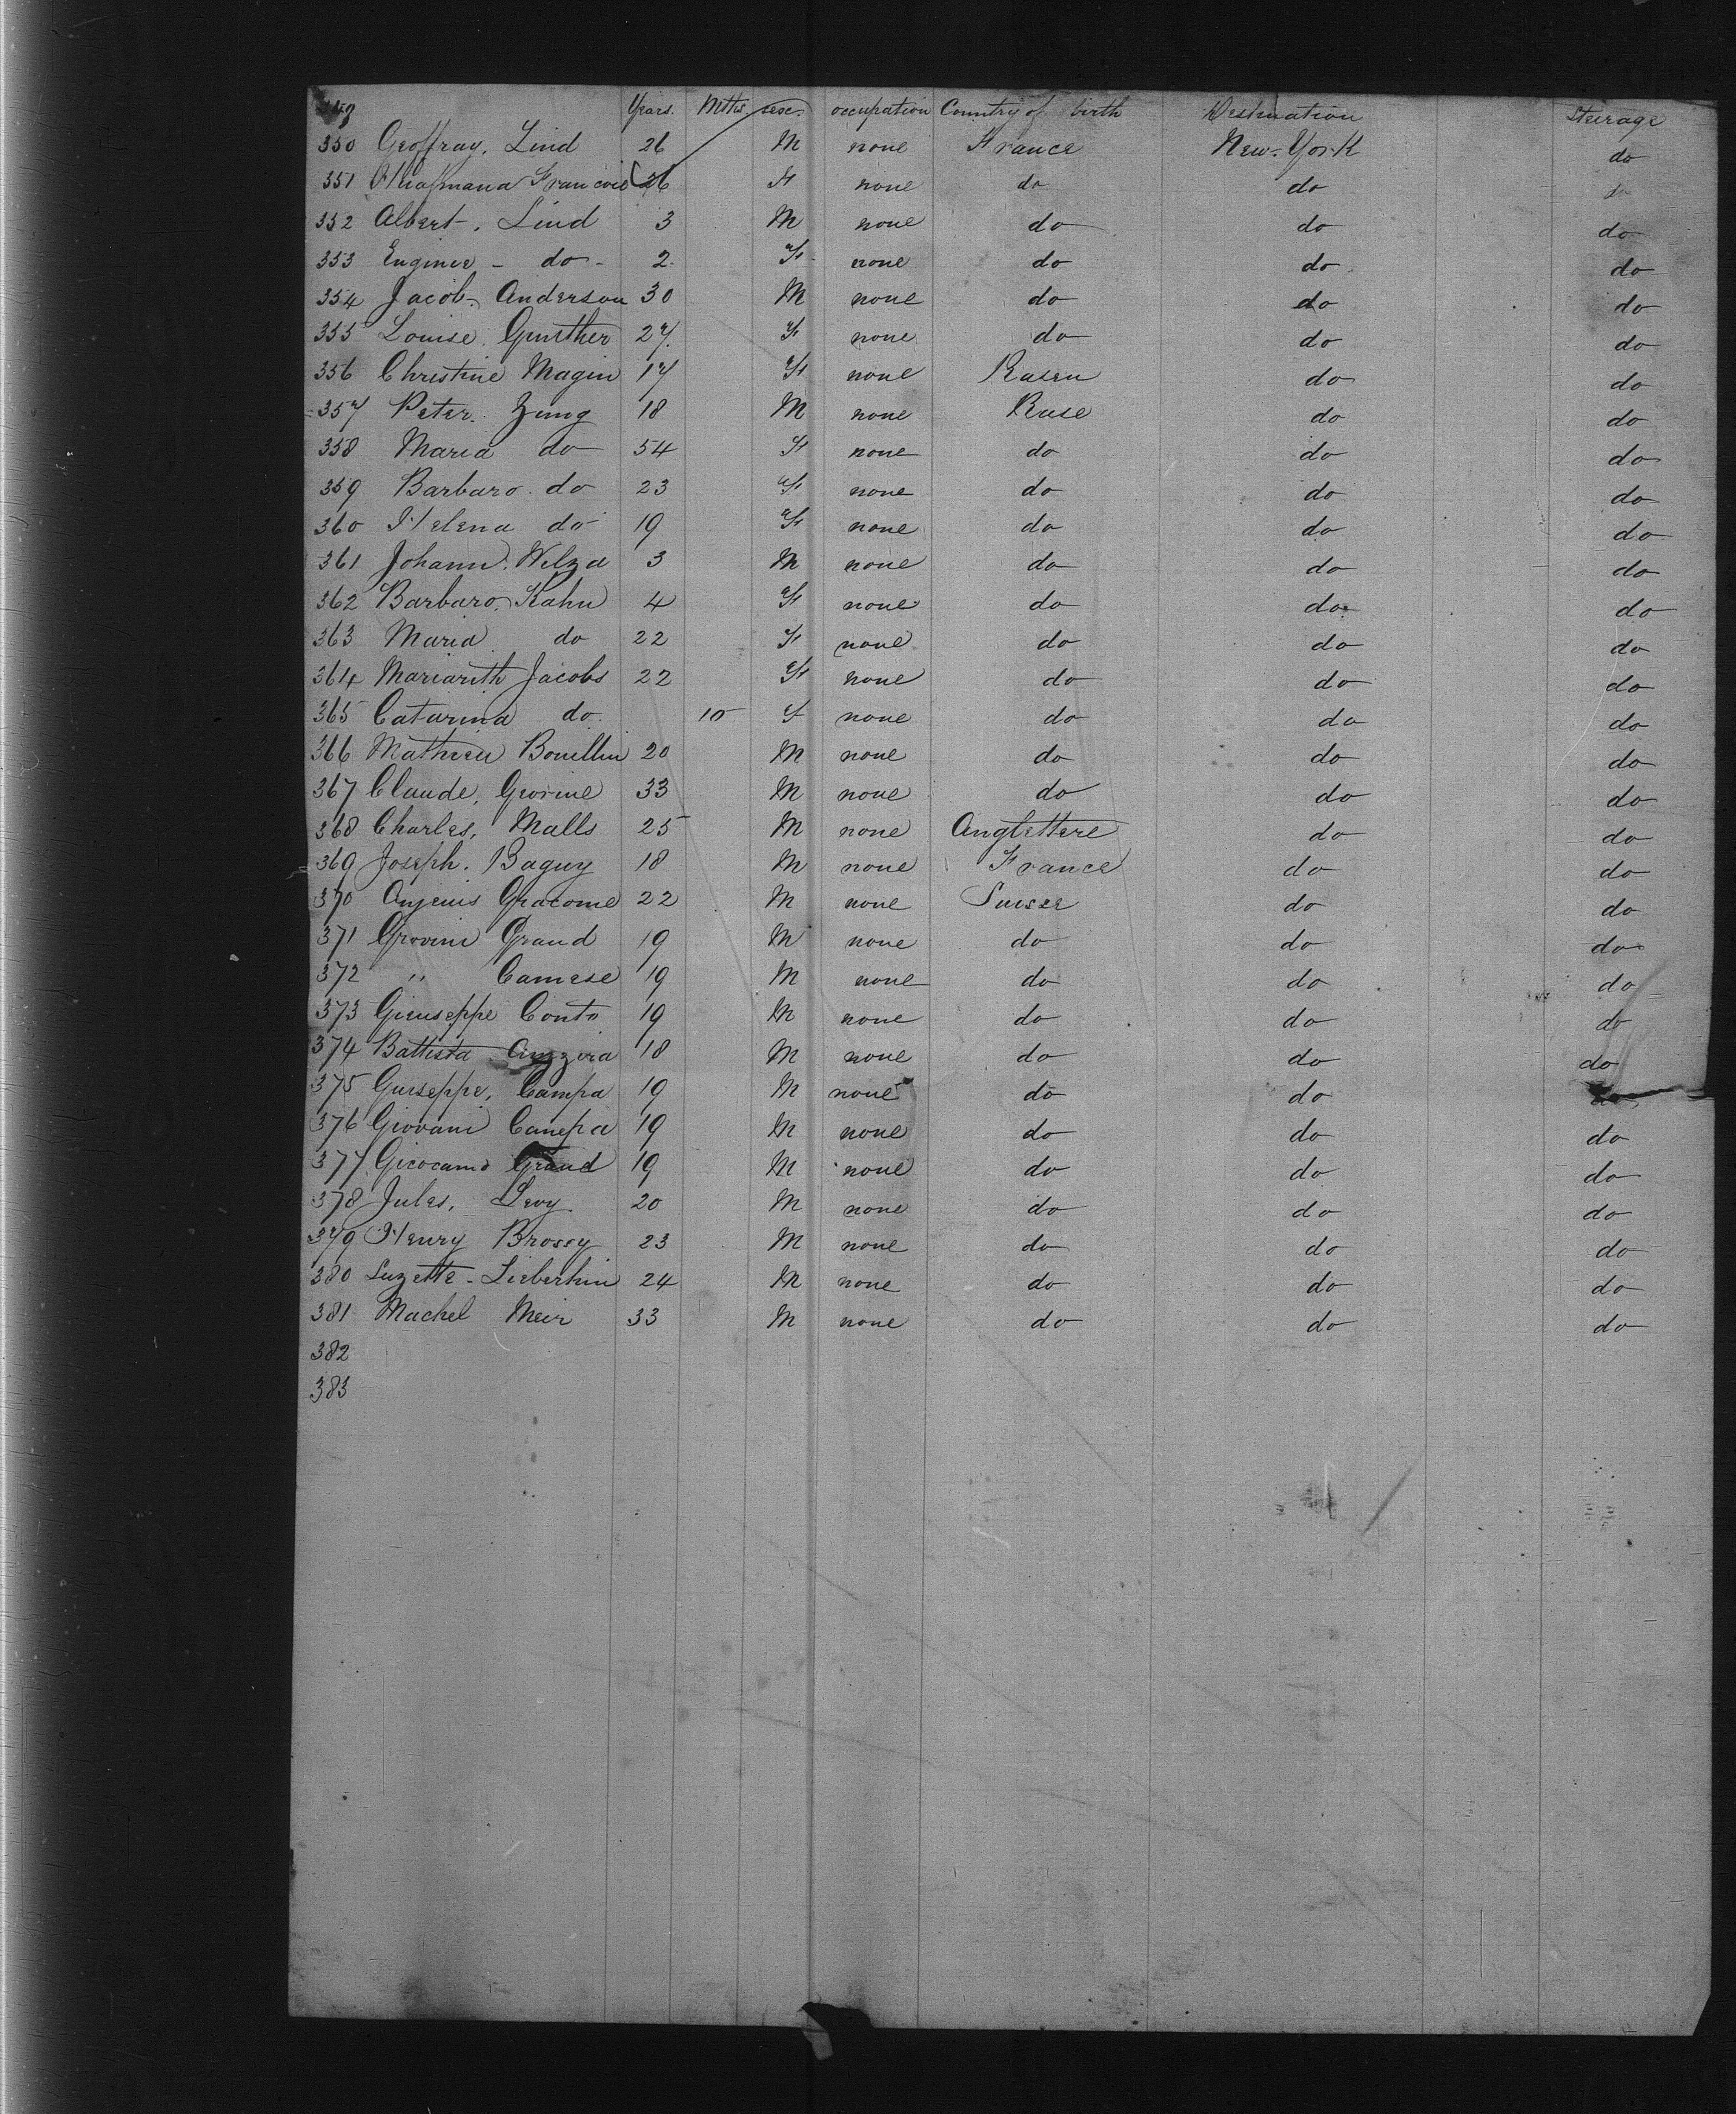 349 Years. Mths sex. occupation Country of birth Destination Steirage
350 Geoffray. Lind 26 M none France New-York do
351 Francois 26 F none do do do
352 Albert. Lind 3 M none do do do
353 Enginie - do - 2 F none do do do
354 Jacob. Anderson 30 M none do do do
355 Louise. Gunther 27. F none do do do
356 Christine Magin 17 F none do do
357 Peter. Zung 18 M none do do
358 Maria do 54 F none do do do
359 Barbaro. do 23 F none do do do
360 Helena do 19 F none do do do
361 Johann. Welza 3 M none do do do
362 Barbaro. Kahn 4 F none do do do
363 Maria do 22 F none do do do
364 Mariarith Jacobs 22 F none do do do
365 Catarina do. 10 F none do do do
366 Mathieu Bouillin 20 M none do do do
367 Claude, 33 M none do do do
368 Charles, Malls 25 M none Anglettere do do
369 Joseph. Baguy 18 M none France do do
370 Giacome 22 M none Suisse do do
371 Giovini Grand 19 M none do do do
372 " Camese 19 M none do do do
373 Giuuseppe Conto 19 M none do do do
374 Battista 18 M none do do do
375 Guiseppe, Campa 19 M none do do do
376 Giovani Canepa 19 M none do do do
377 Gicocamo Grand 19 M none do do do
378 Jules, Levy. 20 M none do do do
379 Henry Brossy 23 M none do do do
380 Suzette - Lieberhin 24 M none do do do
381 Machel Meir 33 M none do do do
382
383